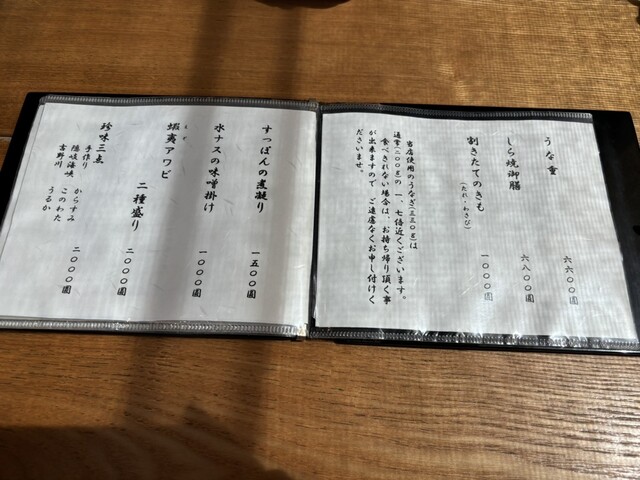 うな重 六六〇〇圓
しら焼御膳 六八〇〇圓
割きたてのきも 一〇〇〇圓
(たれ・わさび)
当店使用のうなぎ(三三〇g)は
通常(二〇〇g)の一、七倍近くございます。
食べきれない場合は、お持ち帰り頂く事
が出来ますので、ご遠慮なくお申し付けく
ださいませ。
すっぽんの煮凝り 一五〇〇圓
水ナスの味噌掛け 一〇〇〇圓
えぞ
蝦夷アワビ 二種盛り 二〇〇〇圓
珍味三点 二〇〇〇圓
手作り からすみ
隠岐海峡 このわた
富野川 うるか